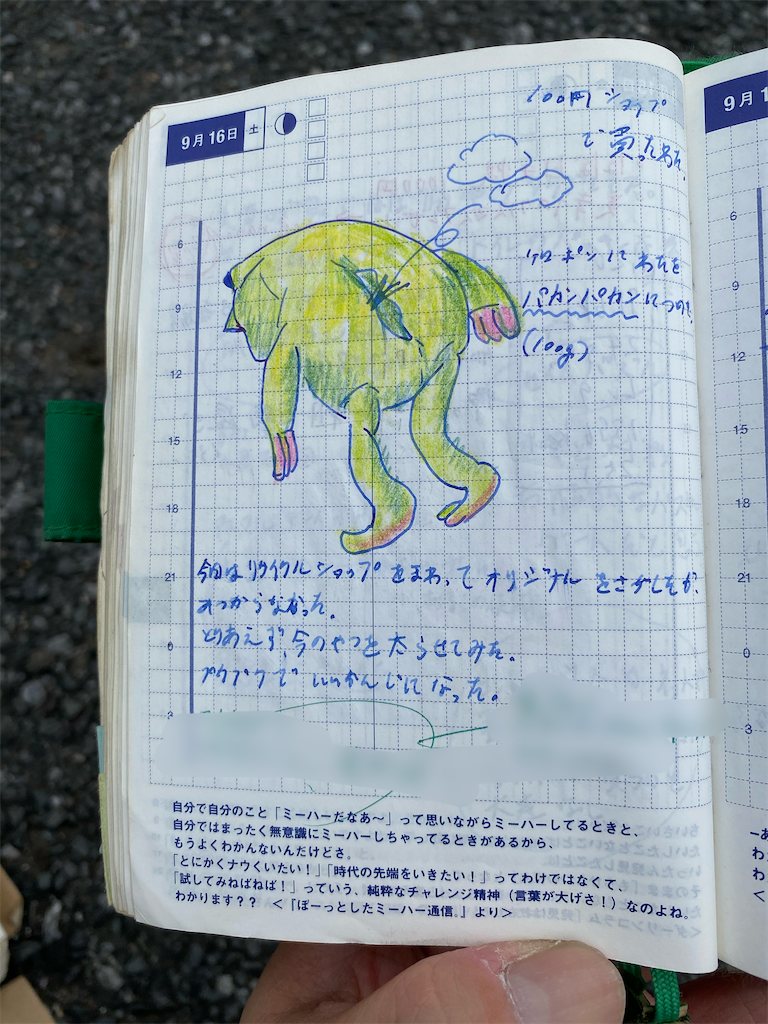 9月16日 土
100円ショップ
で買ったわた。
ケロポンにわたを
パカンパカンにつめた
(100g)
6
9
12
15
18
21
0
3
今日はリサイクルショップをまわってオリジナルをさがしたが、
みつからなかった。
とりあえず、今のやつを太らせてみた。
プクプクでいいかんじになった。
自分で自分のこと「ミーハーだなあ〜」って思いながらミーハーしてるときと、
自分ではまったく無意識にミーハーしちゃってるときがあるから、
もうよくわかんないんだけどさ。
「とにかくナウくいたい！」「時代の先端をいきたい！」ってわけではなくて、
「試してみねばねば！」っていう、純粋なチャレンジ精神（言葉が大げさ！）なのよね。
わかります？？ ＜『ぼーっとしたミーハー通信。』より＞
9月1
6
9
12
15
18
21
0
3